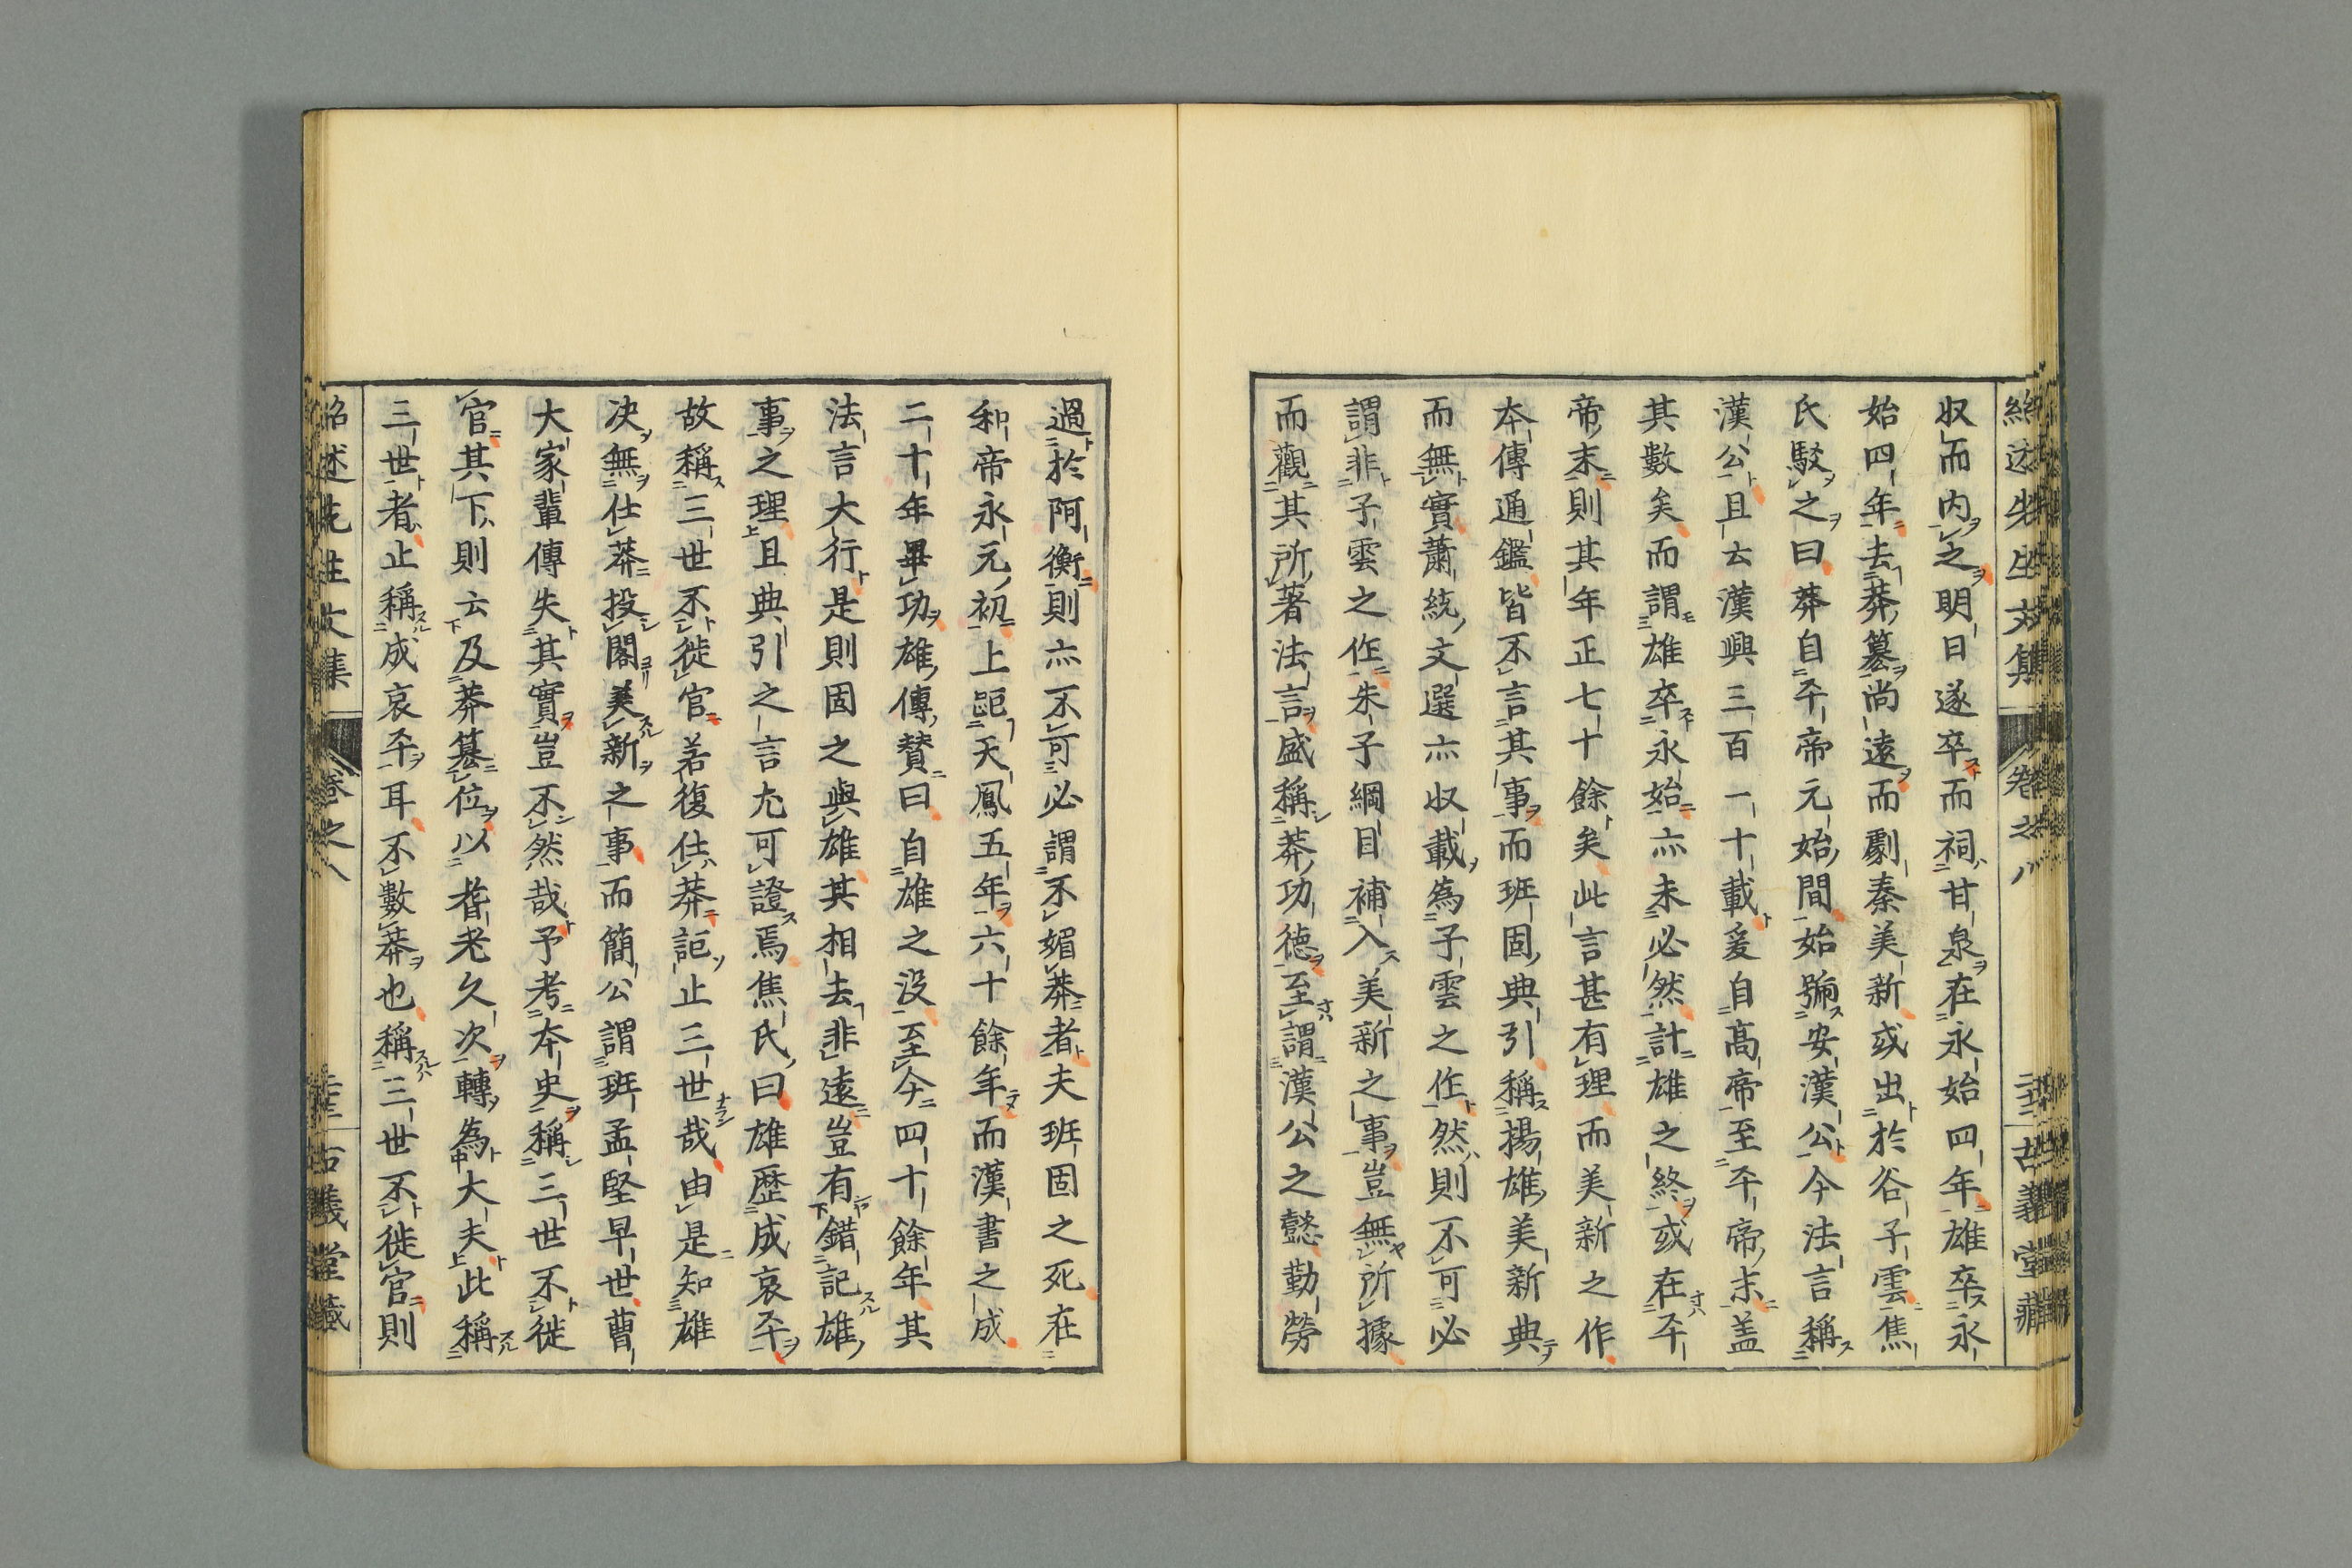 紹述先生文集 卷之八 古義堂藏
収而内之明日遂卒而祠甘泉在永始四年雄卒永
始四年去莽簒尚遠而劇秦美新或出於谷子雲焦
氏駁之曰莽自平帝元始間始號安漢公今法言稱
漢公且云漢興三百一十載爰自髙帝至平帝末盖
其數矣而謂雄卒永始亦未必然計雄之終或在平
帝末則其年正七十餘矣此言甚有理而美新之作
本傳通鑑皆不言其事而班固典引稱揚雄美新典
而無實蕭統文選亦収載為子雲之作然則不可必
謂非子雲之作朱子綱目補入美新之事豈無所據
而觀其所著法言盛稱莽功德至謂漢公之懿勤勞
過於阿衡則亦不可必謂不媚莽者夫班固之死在
和帝永元初上距天鳳五年六十餘年而漢書之成
二十年畢功雄傳贊曰自雄之没至今四十餘年其
法言大行是則固之與雄其相去非遠豈有錯記雄
事之理且典引之言尤可證焉焦氏曰雄歴成哀平
故稱三世不徙官若復仕莽詎止三世哉由是知雄
决無仕莽投閣美新之事而簡公謂班孟堅早世曹
大家輩傳失其實豈不然哉予考本史稱三世不徙
官其下則云及莽簒位以耆老久次轉為大夫此稱
三世者止稱成哀平耳不數莽也稱三世不徙官則
紹述先生文集 卷之八 古義堂藏